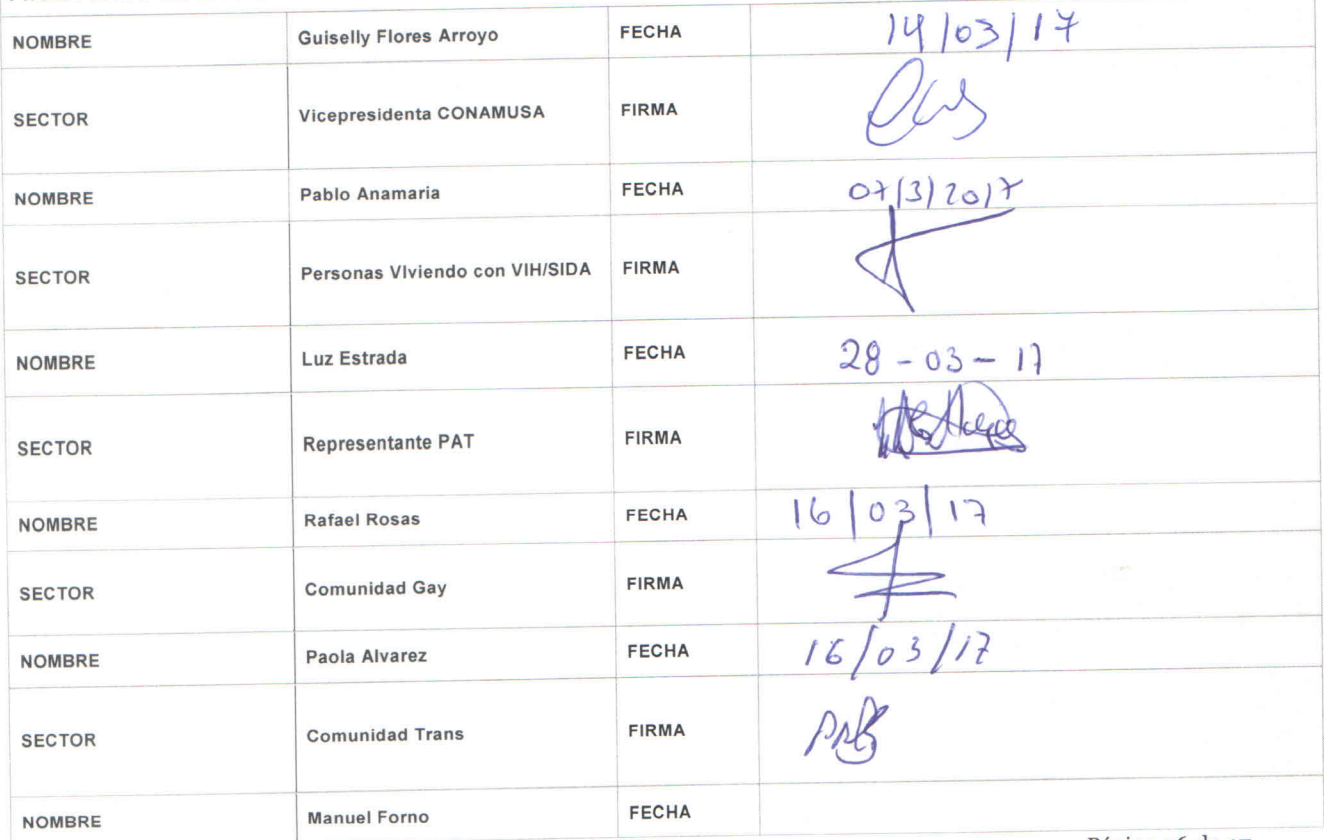 NOMBRE Guiselly Flores Arroyo FECHA 14/03/17
SECTOR Vicepresidenta CONAMUSA FIRMA
NOMBRE Pablo Anamaria FECHA 07/3/2017
SECTOR Personas VIviendo con VIH/SIDA FIRMA
NOMBRE Luz Estrada FECHA 28-03-17
SECTOR Representante PAT FIRMA
NOMBRE Rafael Rosas FECHA 16/03/17
SECTOR Comunidad Gay FIRMA
NOMBRE Paola Alvarez FECHA 16/03/17
SECTOR Comunidad Trans FIRMA
NOMBRE Manuel Forno FECHA